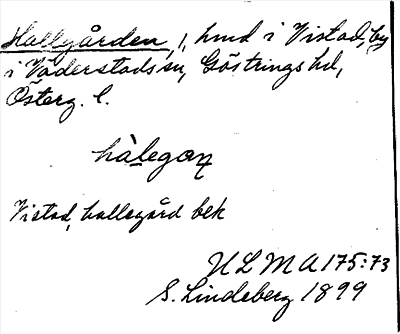 Hallgården, 1, hmd i Vistad, by
i Väderstads sn, Göstrings hd,
Österg. l.
hàlegaɳ
Vistad, hallegård bek
ULMA 175:73
S. Lindeberg 1899